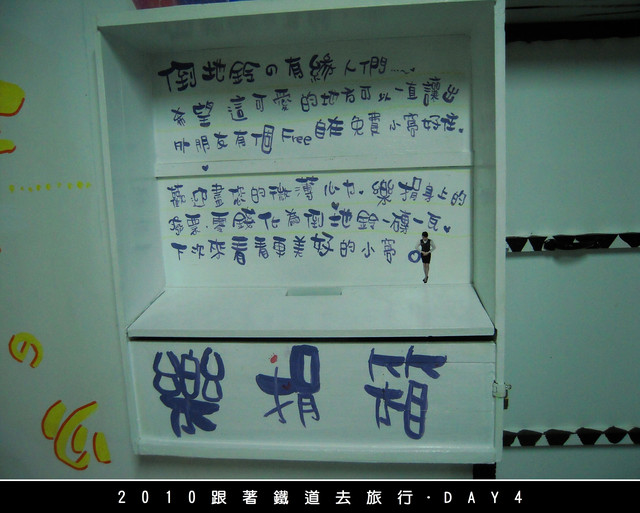 倒地鈴の有緣人們
希望這可愛的地方可以一直讓出
外朋友有個Free自在免費小窩好住。
歡迎盡您的微薄心力。樂捐身上的
鈔票。零錢化為倒地鈴一磚一瓦。
下次來看看更美好的小窩
樂捐箱
2010跟著鐵道去旅行·DAY4